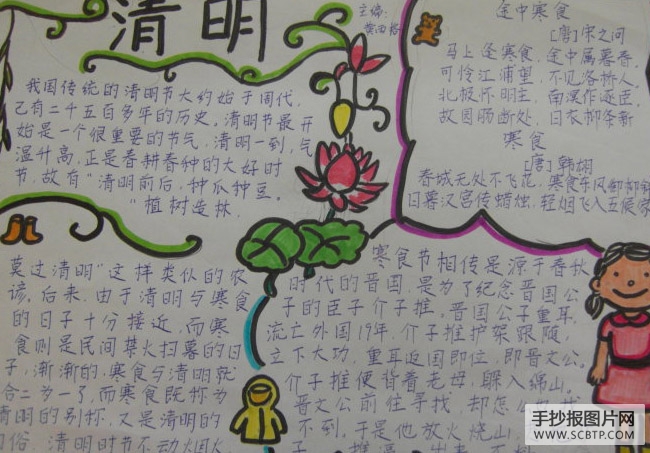 清明
主编:
我国传统的清明节大约始于周代,
已有二千五百多年的历史。清明节最开
始是一个很重要的节气,清明一到,气
温升高,正是春耕春种的大好时
节,故有"清明前后,种瓜种豆。
"植树造林,
莫过清明"这样类似的农
谚。后来,由于清明与寒食
的日子十分接近,而寒
食则是民间禁火扫墓的日
子,渐渐的,寒食与清明就
合二为一了,而寒食既称为
清明的别称,又是清明的
习俗,清明时节不动烟火
途中寒食
[唐]宋之问
马上逢寒食,途中属暮春。
可怜江浦望,不见洛桥人。
北极怀明主,南溟作逐臣。
故园肠断处,日衣柳条新
寒食
[唐]韩翃
春城无处不飞花,寒食东风御柳斜
日暮汉宫传蜡烛,轻烟飞入五侯家
寒食节相传是源于春秋
时代的晋国,是为了纪念晋国公
子的臣子介子推。晋国公子重耳,
流亡外国19年,介子推护驾跟随,
立下大功,重耳返国即位,即晋文公。
介子推便背着老母,躲入绵山。
晋文公前往寻找,却怎
不到,于是他放火烧山,
手抄报图片网
WWW.SCBTP.COM